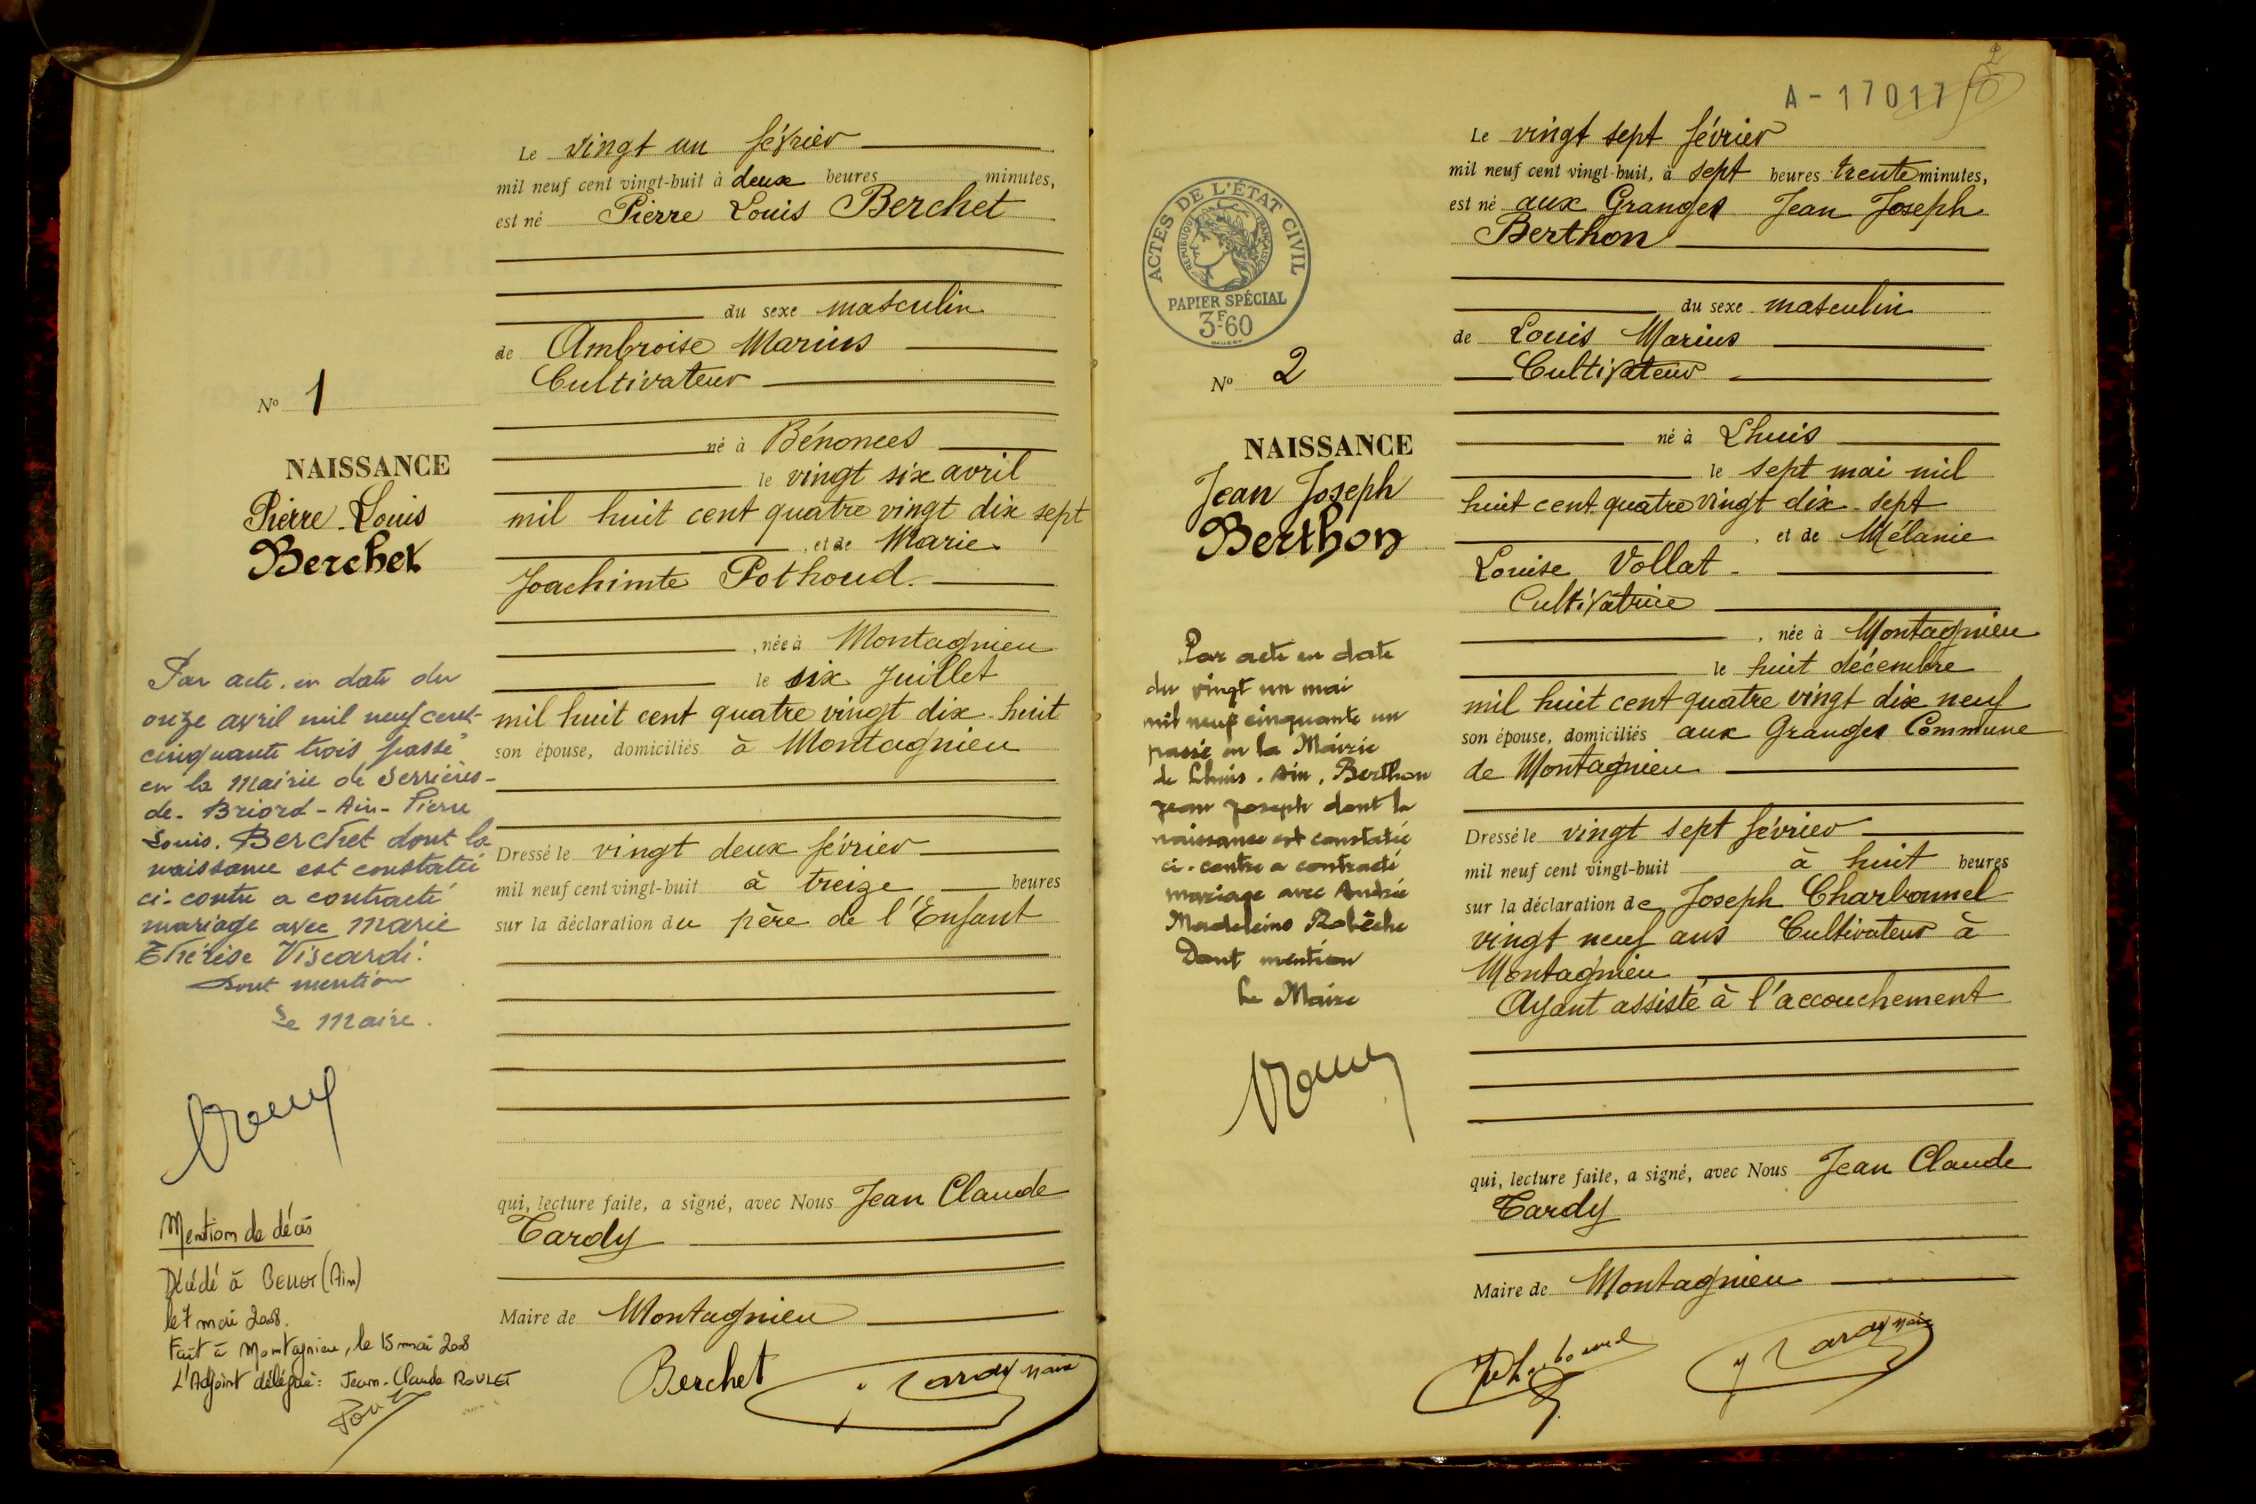 Le vingt un février
mil neuf cent vingt-huit à deux heures minutes,
est né Pierre Louis Berchet
du sexe masculin
de Ambroise Marius
Cultivateur
né à Bénonces
le vingt six avril
mil huit cent quatre vingt dix sept
, et de Marie
Joachimte Pothoud.
, née à Montagnieu
le six Juillet
mil huit cent quatre vingt dix-huit
son épouse, domiciliés à Montagnieu
Dressé le vingt deux février
mil neuf cent vingt-huit à treize heures
sur la déclaration du père de l'Enfant
qui, lecture faite, a signé, avec Nous Jean Claude
Tardy
Maire de Montagnieu
Berchet
Tardy maire
No 1
NAISSANCE
Pierre-Louis
Berchet
Par acte en date du
onze avril mil neuf cent-
cinquante trois passé
en la Mairie de Serrières-
de-Briord-Ain-Pierre
Louis. Berchet dont la
naissance est constatée
ci-contre a contracté
mariage avec Marie
Thérèse Viscardi.
Dont mention
Le Maire.
Mention de décès
Décédé à (Ain)
le 7 mai 2008.
Fait à Montagnieu, le 15 mai 2008
L'Adjoint délégué: Jean-Claude ROULET
A-17017
ACTES DE L'ÉTAT CIVIL
RÉPUBLIQUE FRANÇAISE
PAPIER SPÉCIAL
3F60
No 2
NAISSANCE
Jean Joseph
Berthon
Par acte en date
du vingt un mai
mil neuf cinquante un
passé en la Mairie
de Lhuis. Ain, Berthon
Jean Joseph dont la
naissance est constatée
ci-contre a contracté
mariage avec Andrée
Madeleine Robèche
Dont mention
Le Maire
Le vingt sept février
mil neuf cent vingt-huit, à sept heures trente minutes,
est né aux Granges Jean Joseph
Berthon
du sexe masculin
de Louis Marius
Cultivateur
né à Lhuis
le sept mai mil
huit cent quatre vingt dix-sept
, et de Mélanie
Louise Vollat-
Cultivatrice
, née à Montagnieu
le huit décembre
mil huit cent quatre vingt dix neuf
son épouse, domiciliés aux Granges Commune
de Montagnieu
Dressé le vingt sept février
mil neuf cent vingt-huit à huit heures
sur la déclaration de Joseph Charbonnel
vingt neuf ans Cultivateur à
Montagnieu
Ayant assisté à l'accouchement
qui, lecture faite, a signé, avec Nous Jean Claude
Tardy
Maire de Montagnieu
Tardy maire